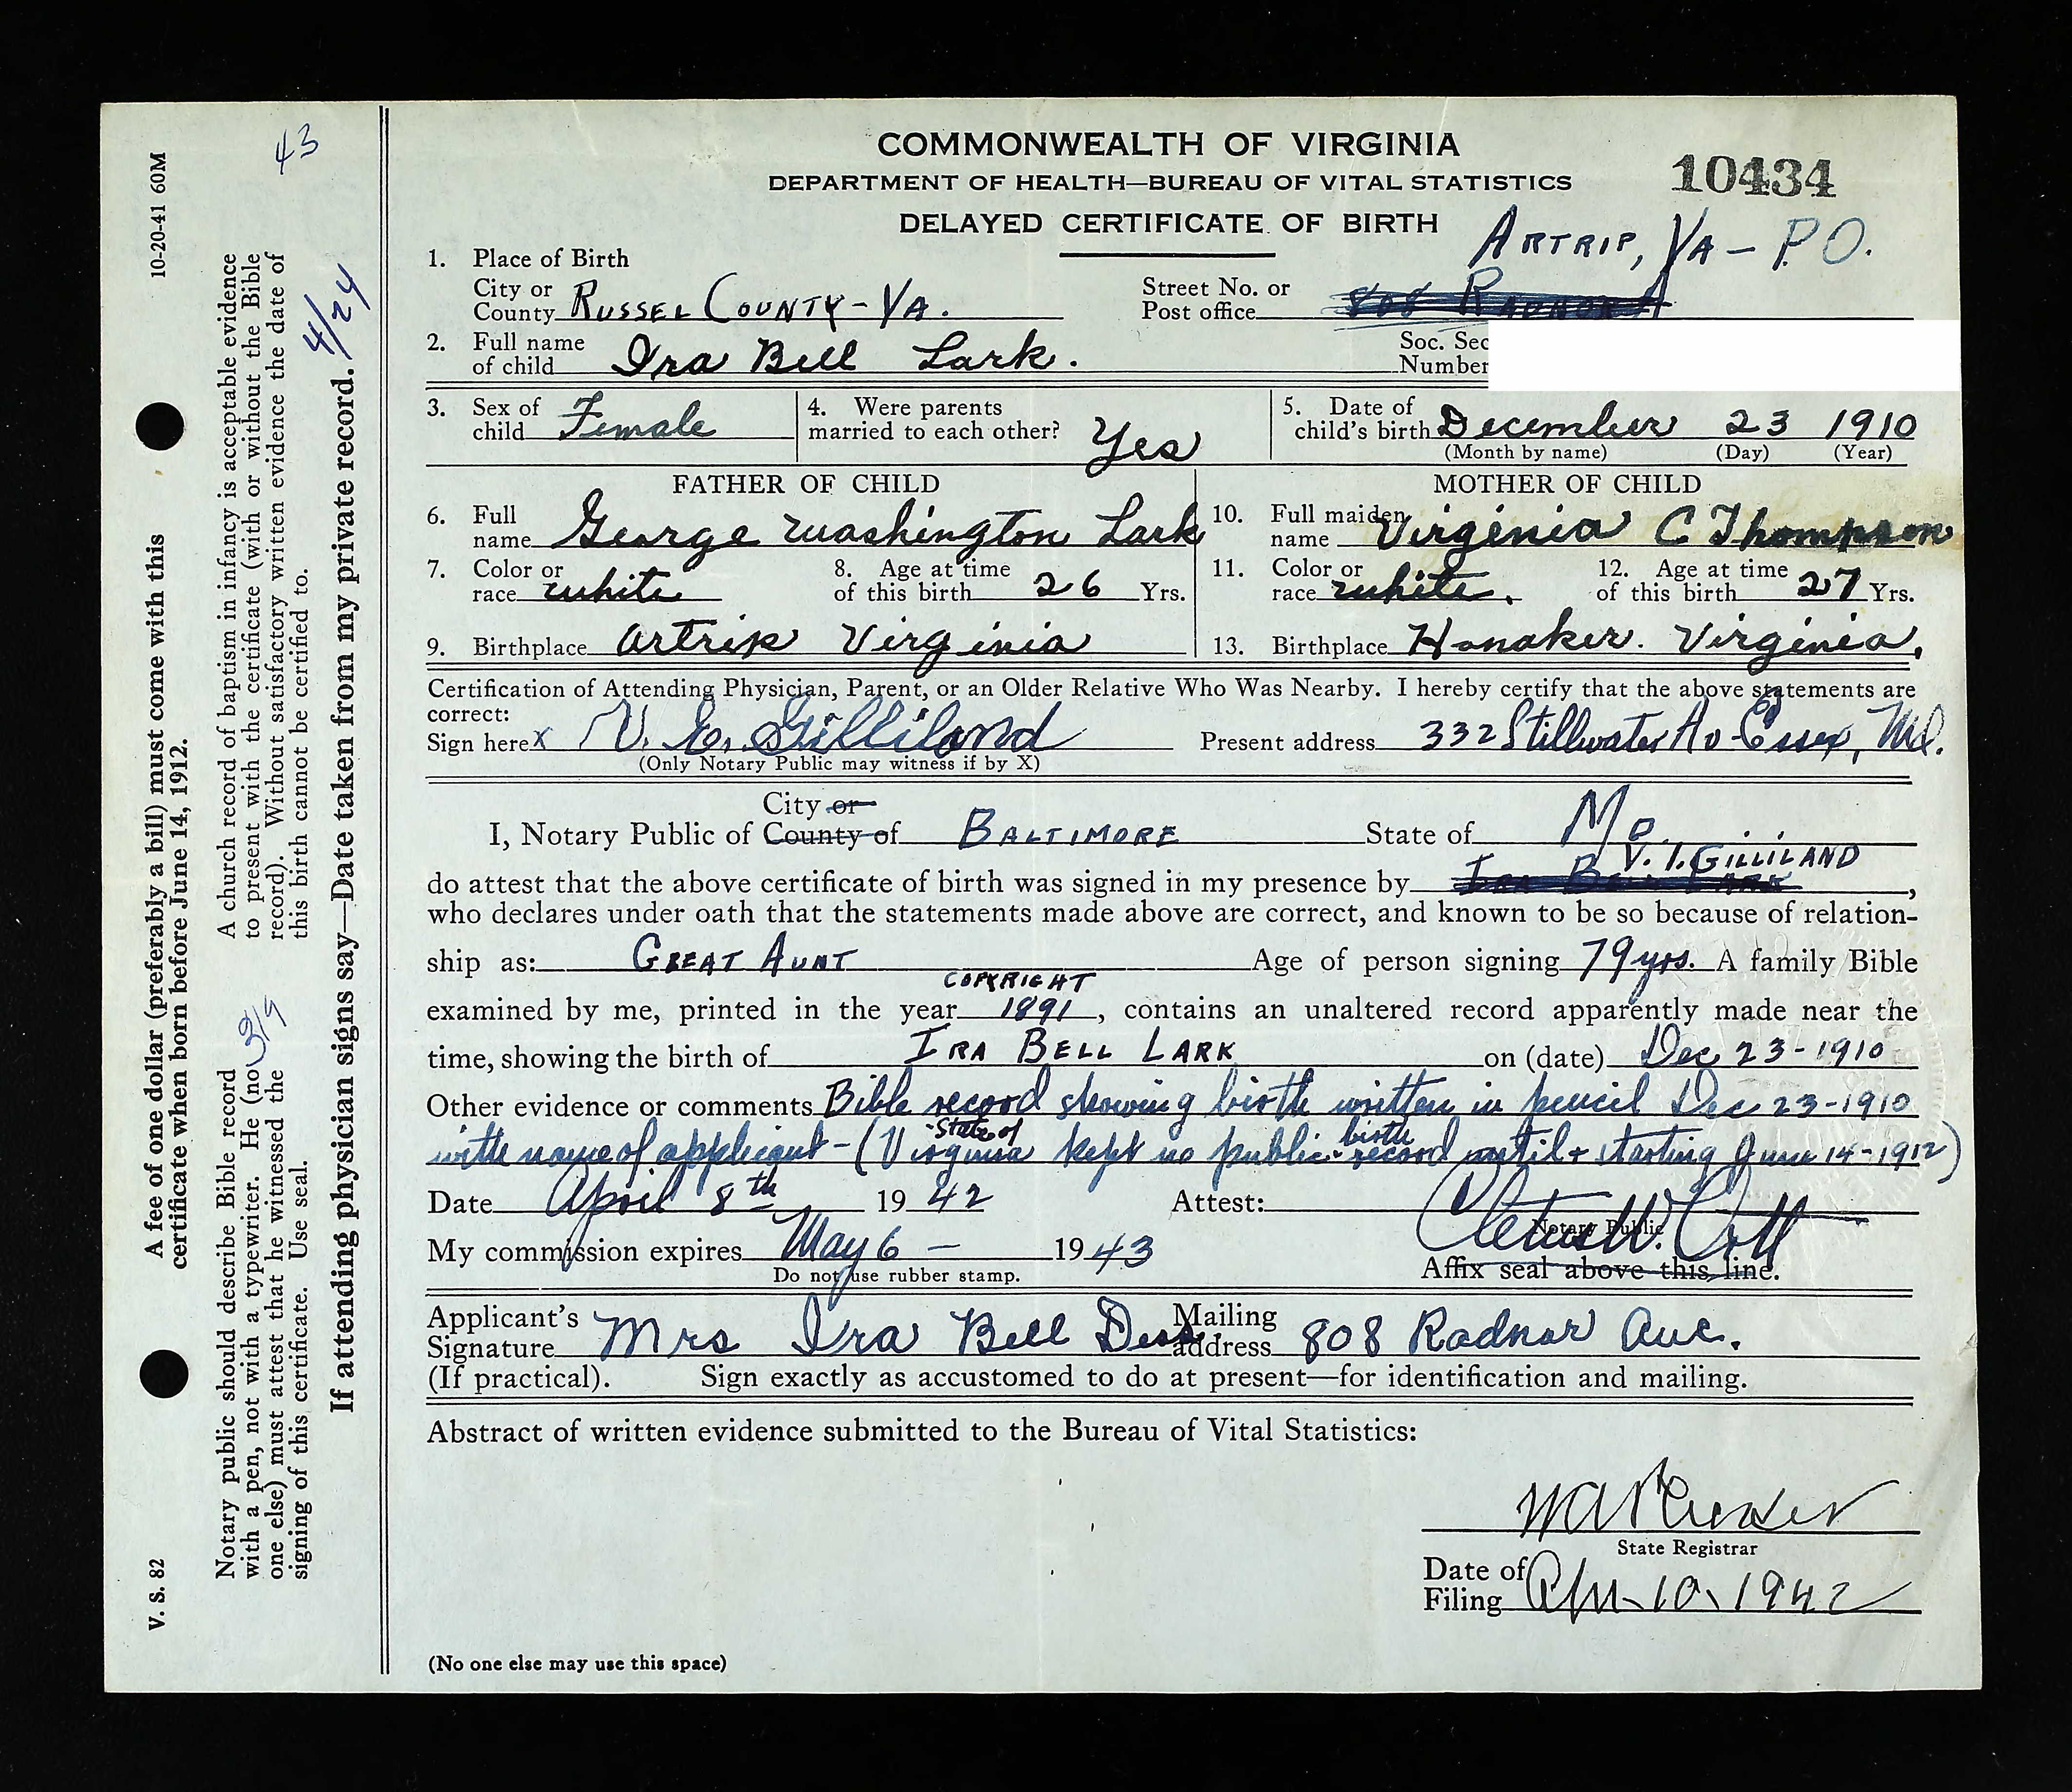 COMMONWEALTH OF VIRGINIA
DEPARTMENT OF HEALTH—BUREAU OF VITAL STATISTICS
10434
DELAYED CERTIFICATE OF BIRTH
ARTRIP, VA — P.O.
1. Place of Birth
City or County RUSSEL COUNTY - VA.
Street No. or Post office 808 RADNOR A
2. Full name of child Ira Bell Lark.
Soc. Sec Number
3. Sex of child Female
4. Were parents married to each other? Yes
5. Date of child's birth December 23 1910
(Month by name) (Day) (Year)
FATHER OF CHILD
6. Full name George Washington Lark
7. Color or race white
8. Age at time of this birth 26 Yrs.
9. Birthplace Artrip Virginia
MOTHER OF CHILD
10. Full maiden name Virginia C Thompson
11. Color or race white.
12. Age at time of this birth 27 Yrs.
13. Birthplace Honaker. Virginia.
Certification of Attending Physician, Parent, or an Older Relative Who Was Nearby. I hereby certify that the above statements are
correct:
Sign here x V. E. Gilliland Present address 332 Stillwater Av - Essex, Md.
(Only Notary Public may witness if by X)
I, Notary Public of City or County of BALTIMORE State of MD.
V. I. GILLILAND
do attest that the above certificate of birth was signed in my presence by IRA BELL LARK,
who declares under oath that the statements made above are correct, and known to be so because of relation-
ship as: GREAT AUNT Age of person signing 79 yrs. A family Bible
COPYRIGHT
examined by me, printed in the year 1891, contains an unaltered record apparently made near the
time, showing the birth of IRA BELL LARK on (date) Dec 23-1910
Other evidence or comments Bible record showing birth written in pencil Dec 23-1910
with name of applicant - (State of Virginia kept no public birth record until + starting June 14-1912)
Date April 8th 1942 Attest: Cletus W. Ott
Notary Public
My commission expires May 6 — 1943
Do not use rubber stamp.
Affix seal above this line.
Applicant's Signature Mrs Ira Bell Dess Mailing address 808 Radnor Ave.
(If practical). Sign exactly as accustomed to do at present—for identification and mailing.
Abstract of written evidence submitted to the Bureau of Vital Statistics:
State Registrar
Date of Filing Apr. 10, 1942
(No one else may use this space)
V. S. 82
10-20-41 60M
A fee of one dollar (preferably a bill) must come with this
certificate when born before June 14, 1912.
Notary public should describe Bible record
with a pen, not with a typewriter. He (no
one else) must attest that he witnessed the
signing of this certificate. Use seal.
3/9
A church record of baptism in infancy is acceptable evidence
to present with the certificate (with or without the Bible
record). Without satisfactory written evidence the date of
this birth cannot be certified to.
43
4/24
If attending physician signs say—Date taken from my private record.